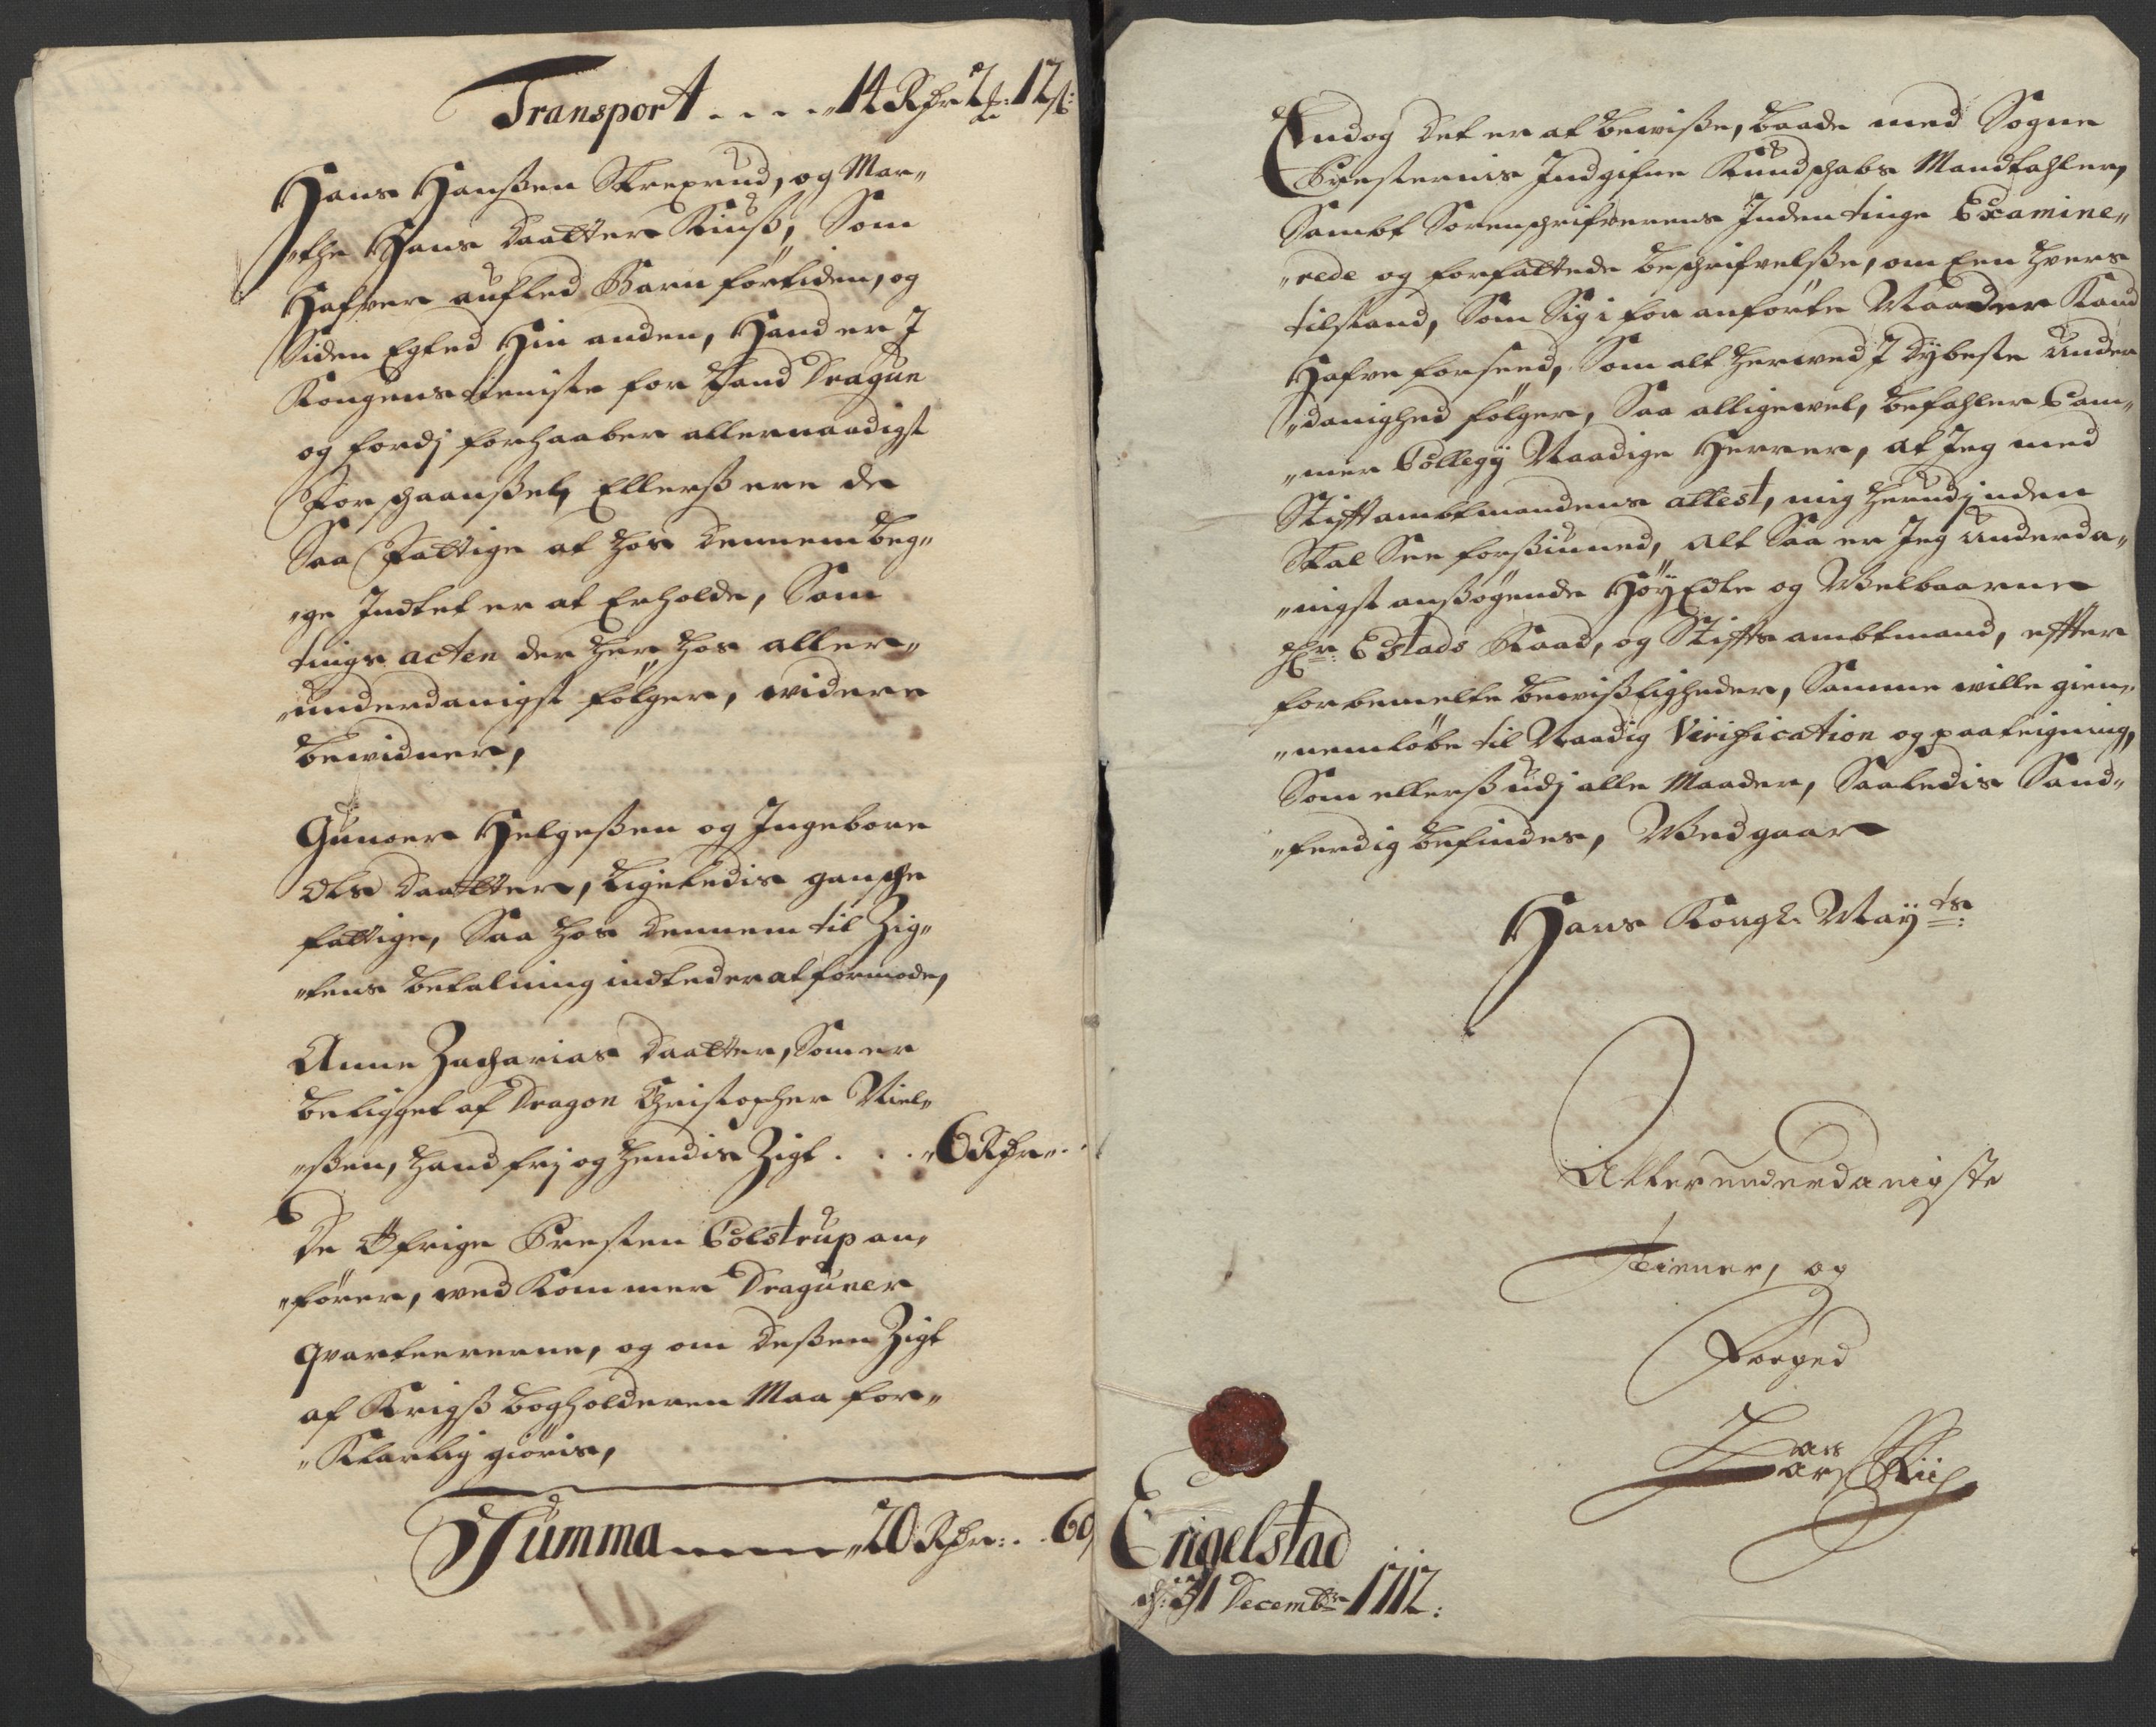 Transport . . . . 14 Rdr 2 12 s:
Hans Hanßen Skreprud, og Mar„
„the Hans daatter Kiuß, Som
Hafver aufled Barn förtiden, og
Siden Egted Hin anden, Hand er I
Kongens tieniste for Land Dragun
og fordj forhaaber allernaadigst
Forschaanßel, Ellerß ere de
Saa Fattige at hos dennem beg„
„ge Indtet er at Erholde, Som
tings acten der her hos aller„
„underdanigst følger, widere
bewidner,
Gunner Helgeßen og Ingebore
Ols daatter, Ligeledis gansche
fattige, Saa hos dennem til Zig„
„tens betalning indted er at formode,
Anne Zacharias daatter, Som er
beligget af Dragon Christopher Niel„
„ßen, hand frj og hendis Zigt . . . „6 Rdr„
De Øfrige Presten Colstrup an„
„fører, wed kommer Draguner
qvarteererne, og om deßen Zigt
af Krigß bogholderen Maa for„
„Klarlig giöris,
Summa „20 Rdr: . . 60
Endog det er at bewiße, baade med Sogne
Presternis Indgifne Kundschabs Mandtahler,
Sambt Sorenschrifwerens Inden tinge Examine„
„rede og forfattede beschrifvelße, om Een hvers
tilstand, Som Sig i for anførte Maader Kand
Hafve forseed, Som alt herwed I dybeste Under„
„danighed følger, Saa alligewel, befahler Cam„
„mer Collegy Naadige Herrer, at Jeg med
Stifftambtmandens attest, mig herudj inden
Skal See forßiuned, alt Saa er Jeg Underda„
„nigst ansøgende HöyEdle og Welbaarne
Hr: Estads Raad, og Stiffts ambtmand, effter
forbemelte bewißligheder, Samme wille gien„
„nemløbe til Naadig Verification og paateigning,
Som ellerß udj alle Maader, Saaledis Sand„
„ferdig befindes, Wedgaar
Hans Kongl. May ts:
Allerunderdanigste
Tienner, og
Foeged
Lars Riis
Engelstad
d: 31 Decembr 1712: